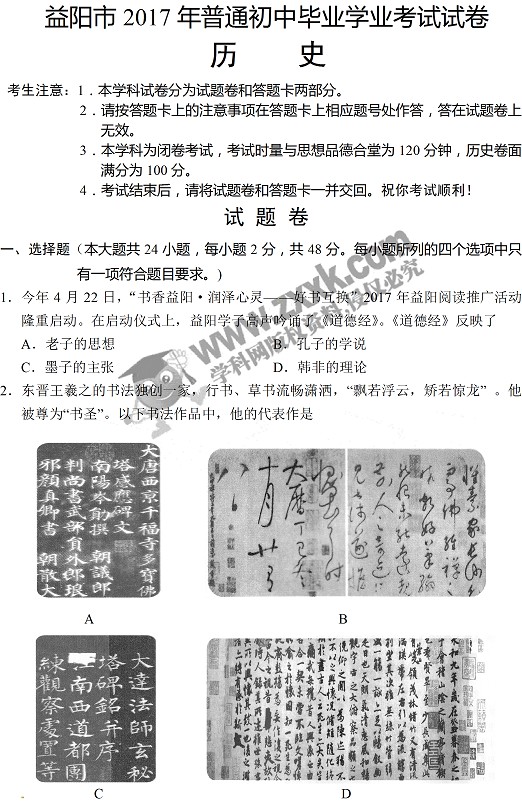 益阳市 2017 年普通初中毕业学业考试试卷
历 史
考生注意：1．本学科试卷分为试题卷和答题卡两部分。
2．请按答题卡上的注意事项在答题卡上相应题号处作答，答在试题卷上
无效。
3．本学科为闭卷考试，考试时量与思想品德合堂为 120 分钟，历史卷面
满分为 100 分。
4．考试结束后，请将试题卷和答题卡一并交回。祝你考试顺利！
试 题 卷
一、选择题（本大题共 24 小题，每小题 2 分，共 48 分。每小题所列的四个选项中只
有一项符合题目要求。)
1．今年 4 月 22 日，“书香益阳·润泽心灵——好书互换”2017 年益阳阅读推广活动
隆重启动。在启动仪式上，益阳学子高声吟诵了《道德经》。《道德经》反映了
A．老子的思想 B．孔子的学说
C．墨子的主张 D．韩非的理论
2．东晋王羲之的书法独创一家，行书、草书流畅潇洒，“飘若浮云，矫若惊龙” 。他
被尊为“书圣”。以下书法作品中，他的代表作是
大唐西京千福寺多寶佛
塔感應碑文
南陽岑勛撰 朝議郎
判尚書武部員外郎琅
邪顏真卿書 朝散大
A
B
大達法師玄秘
塔碑銘并序
江南西道都團
練觀察處置等
C
D
www.zxxk.com